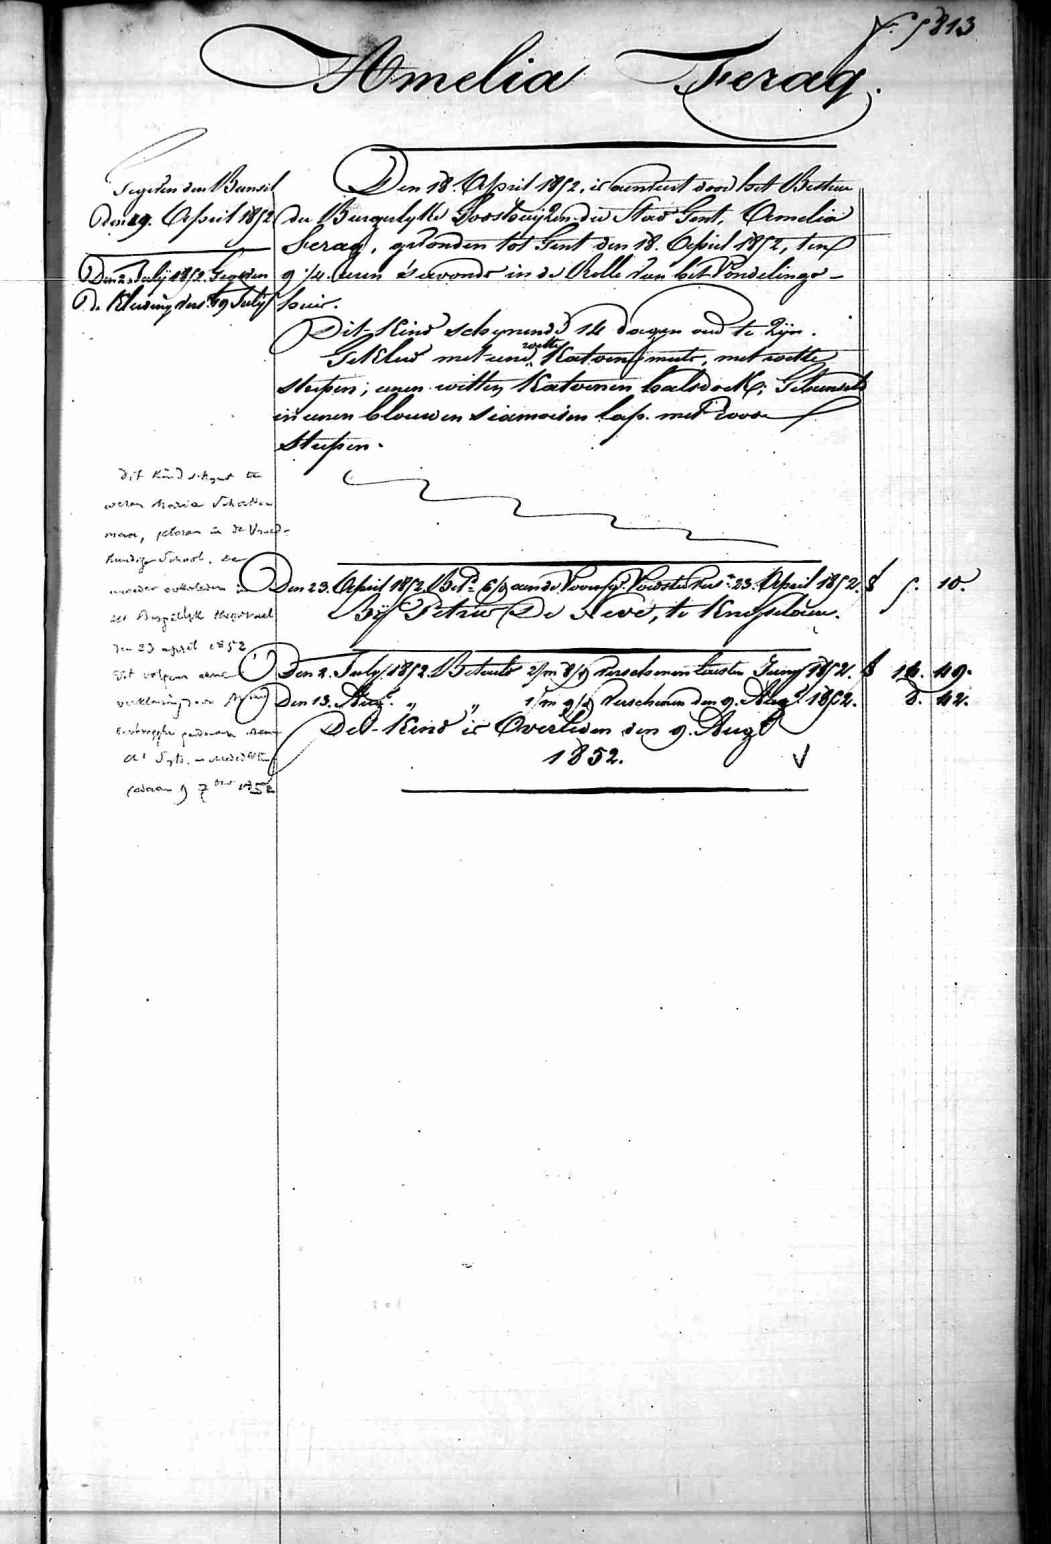 f. 5813
Amelia Feraq.
Gegeven den Bunsel
den 19. April 1852
Den 2. July 1852. Gegeven
de Kleeding vers. 19 July
Den 18. April 1852, is aenveert door het Bestuer
der Burgerlyke Godshuyzen der Stad Gent, Amelia
Feraq, gevonden tot Gent den 18. April 1852, ten
9 1/4 uren 's avonds in de Rolle van het Vondelings-
huis.
Dit Kind schynende 14 dagen oud te zyn.
Gekleed met eene witte Katoene muts, met
strepen; eenen witten Katoenen halsdoek; Gebunseld
in eenen blauwen siamoisen lap met roode
strepen.
dit kind schynt te
wezen Maria
geboren in de Vroed-
kundige School, de
moeder overleden in
het Burgerlyk Hospitaal
den 23 april 1852
dit volgens eene
verklaring van
9 7ber 1852
Den 23. April 1852. Betd. aen de Voedster 23. April 1852. f 5. 10.
Bij Petrus De Neve, te Knesselaere.
Den 2. July 1852. Betaeld 2/m 8/d verschenen laesten Juny 1852. f 14. 49.
Den 13. Augt. " " 1/m 9/d verschenen den 9. Augt 1852. 8. 42.
Det Kind is Overleden den 9. Augt
1852.